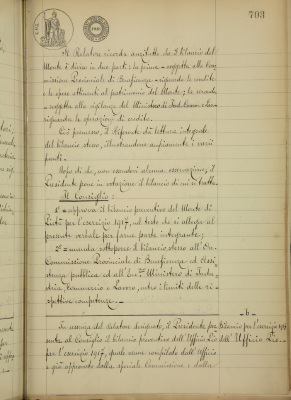 793
Il Relatore ricorda anzitutto che il bilancio del
Monte è diviso in due parti: la prima - soggetta alla Com-
missione Provinciale di Beneficenza - riguarda le rendite
e le spese attinenti al patrimonio del Monte; la seconda
- soggetta alla vigilanza del Ministero di Ind. Comm. e lav.
riguarda le operazioni di credito.
Ciò premesso, il Riferente dà lettura integrale
del bilancio stesso, illustrandone ampiamente i vari
punti.
Dopo di che, non essendovi alcuna osservazione, il
Presidente pone in votazione il bilancio di cui si tratta.
Il Consiglio:
1° = approva il bilancio preventivo del Monte di
Pietà per l'esercizio 1917, nel testo che si allega al
presente verbale per farne parte integrante;
2° = manda sottoporre il bilancio stesso all'On.
Commissione Provinciale di Beneficenza ed Assi-
stenza pubblica ed all'Ecc.mo Ministero di Indu-
stria, Commercio e Lavoro, entro i limiti delle ri-
spettive competenze.
- 6 -
In assenza del relatore designato, il Presidente pre-
senta al Consiglio il bilancio preventivo dell'Ufficio Pio
per l'esercizio 1917, quale venne compilato dall'Ufficio
e già approvato dalla speciale Commissione e dalla
Bilancio per l'esercizio 1917
dell'Ufficio Pio